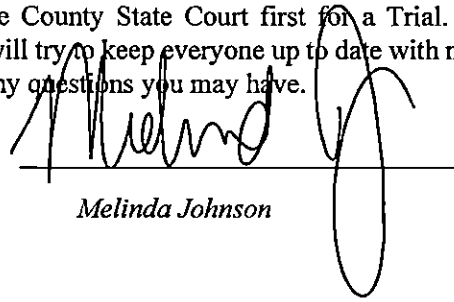 e County State Court first for a Trial.
will try to keep everyone up to date with n
ny questions you may have.
Melinda Johnson